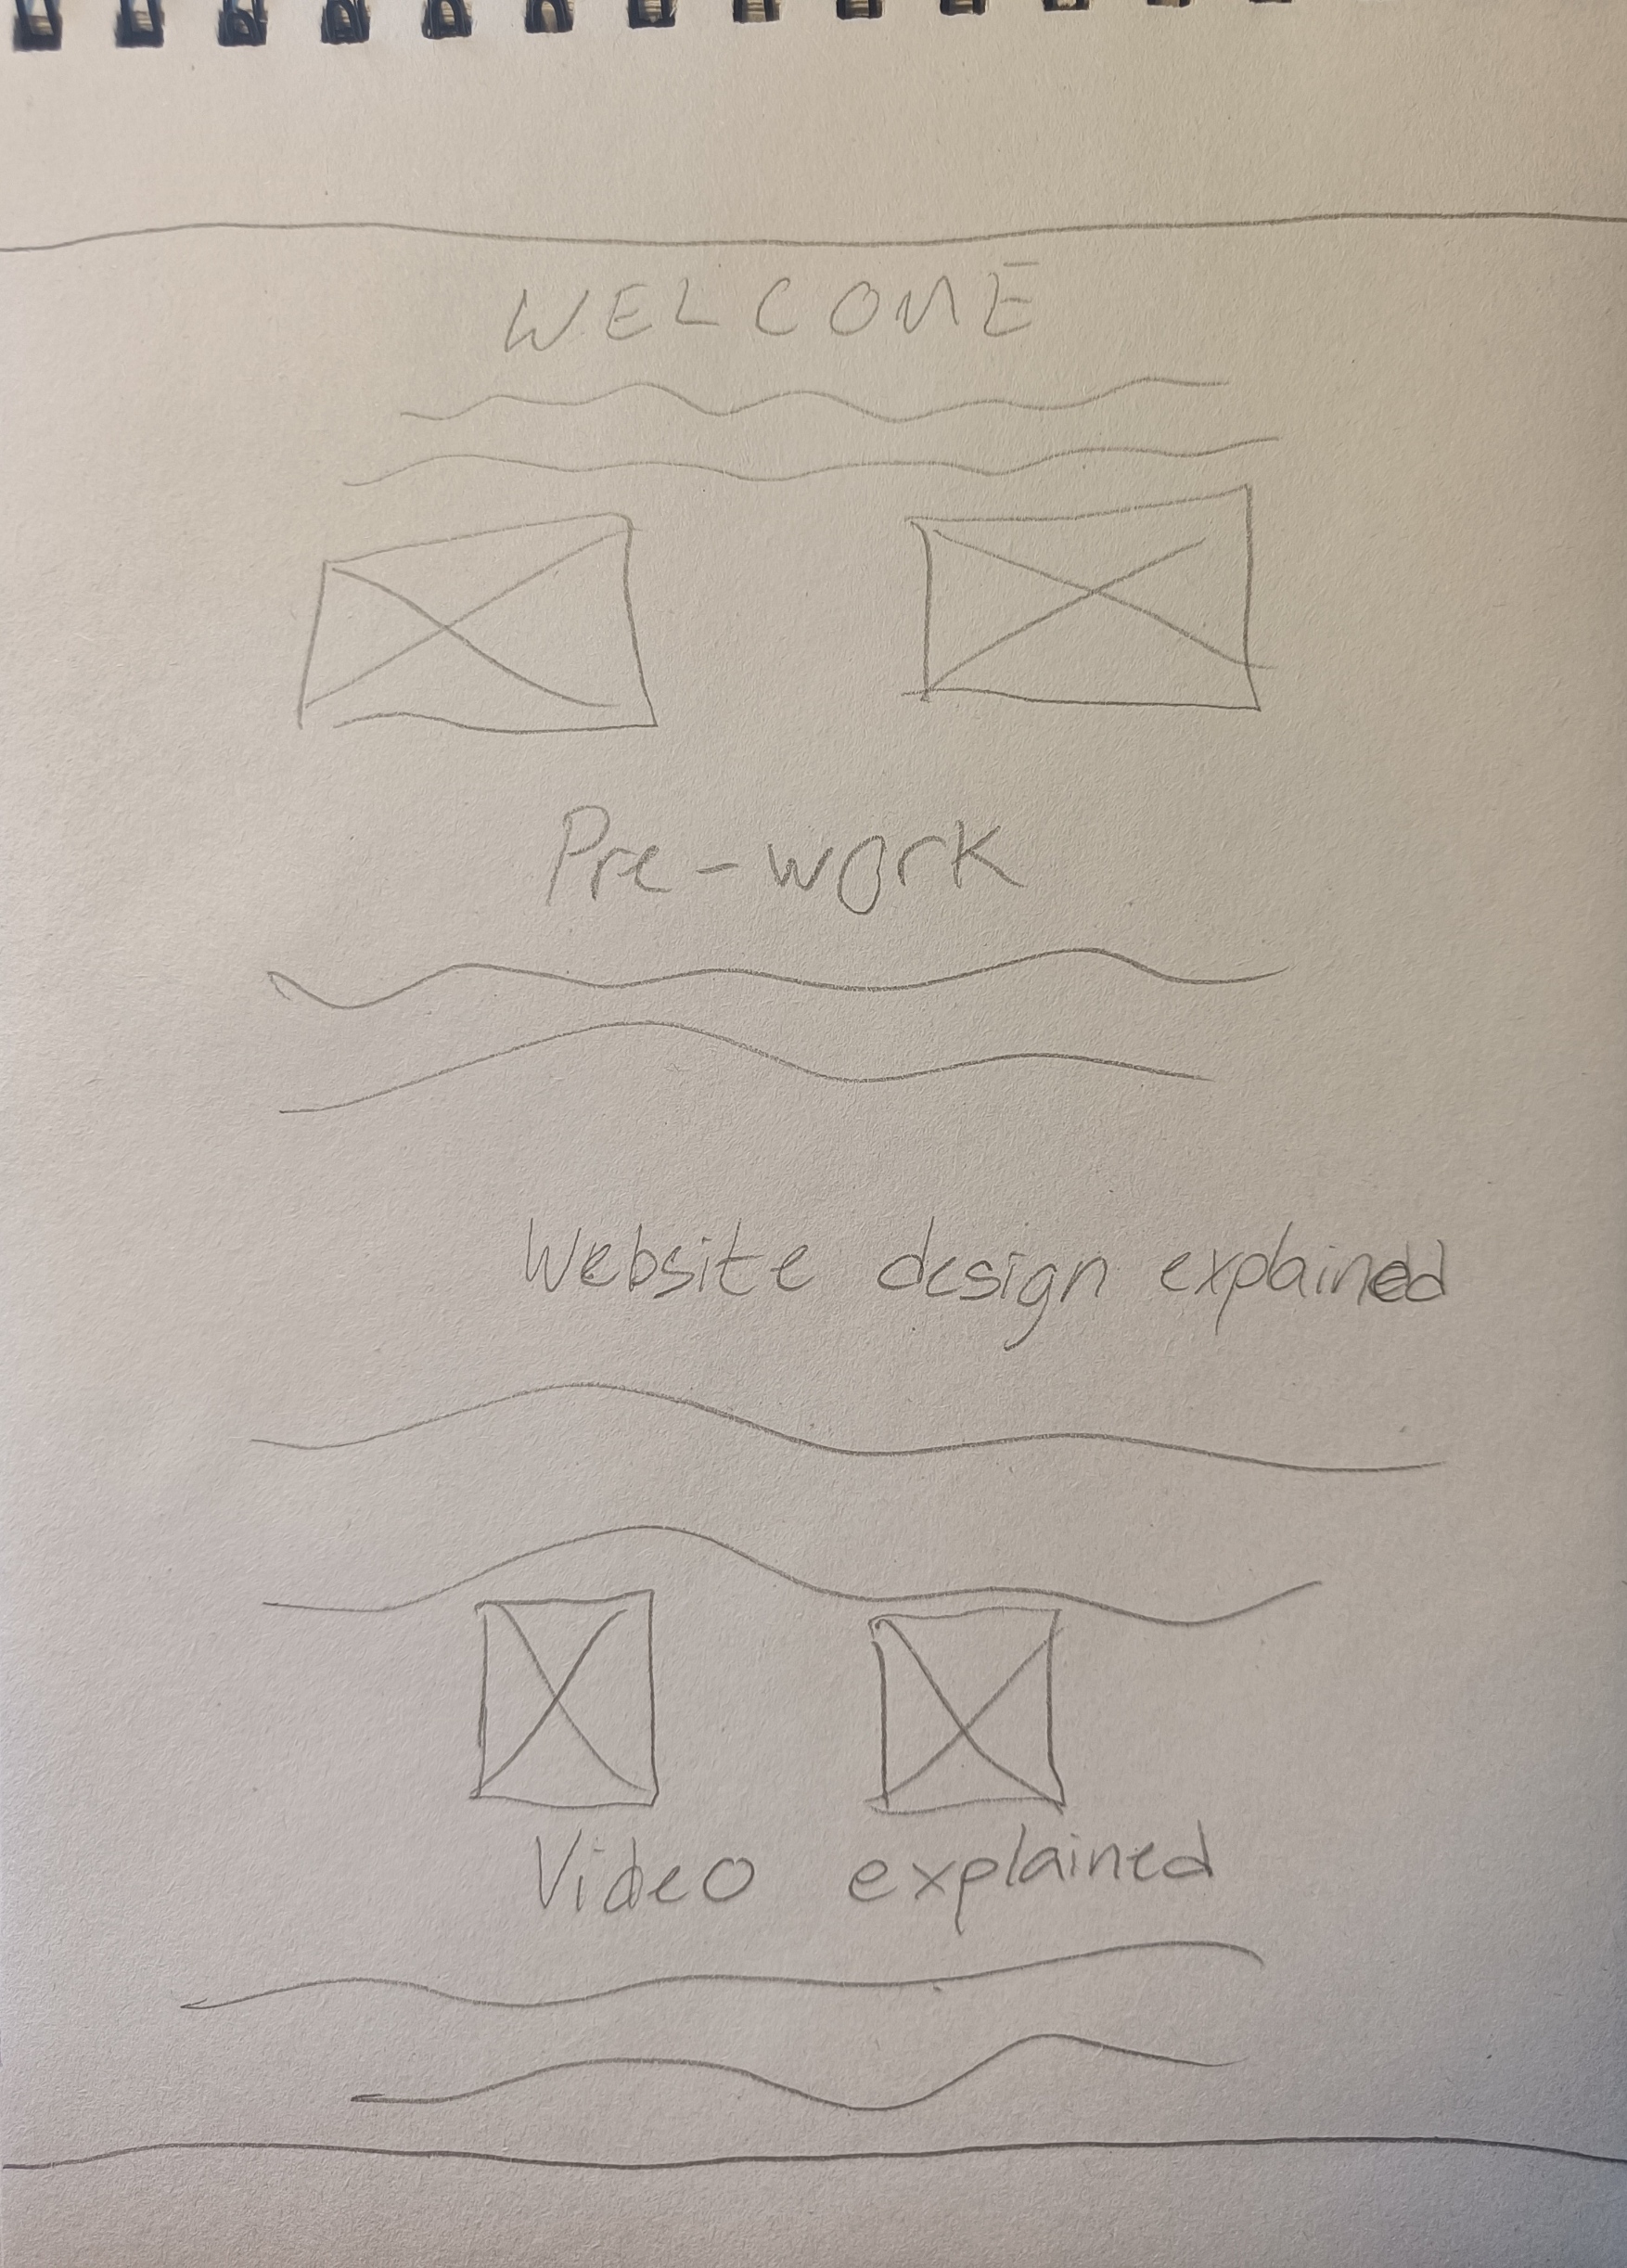 WELCOME
Pre-work
Website design explained
Video explained